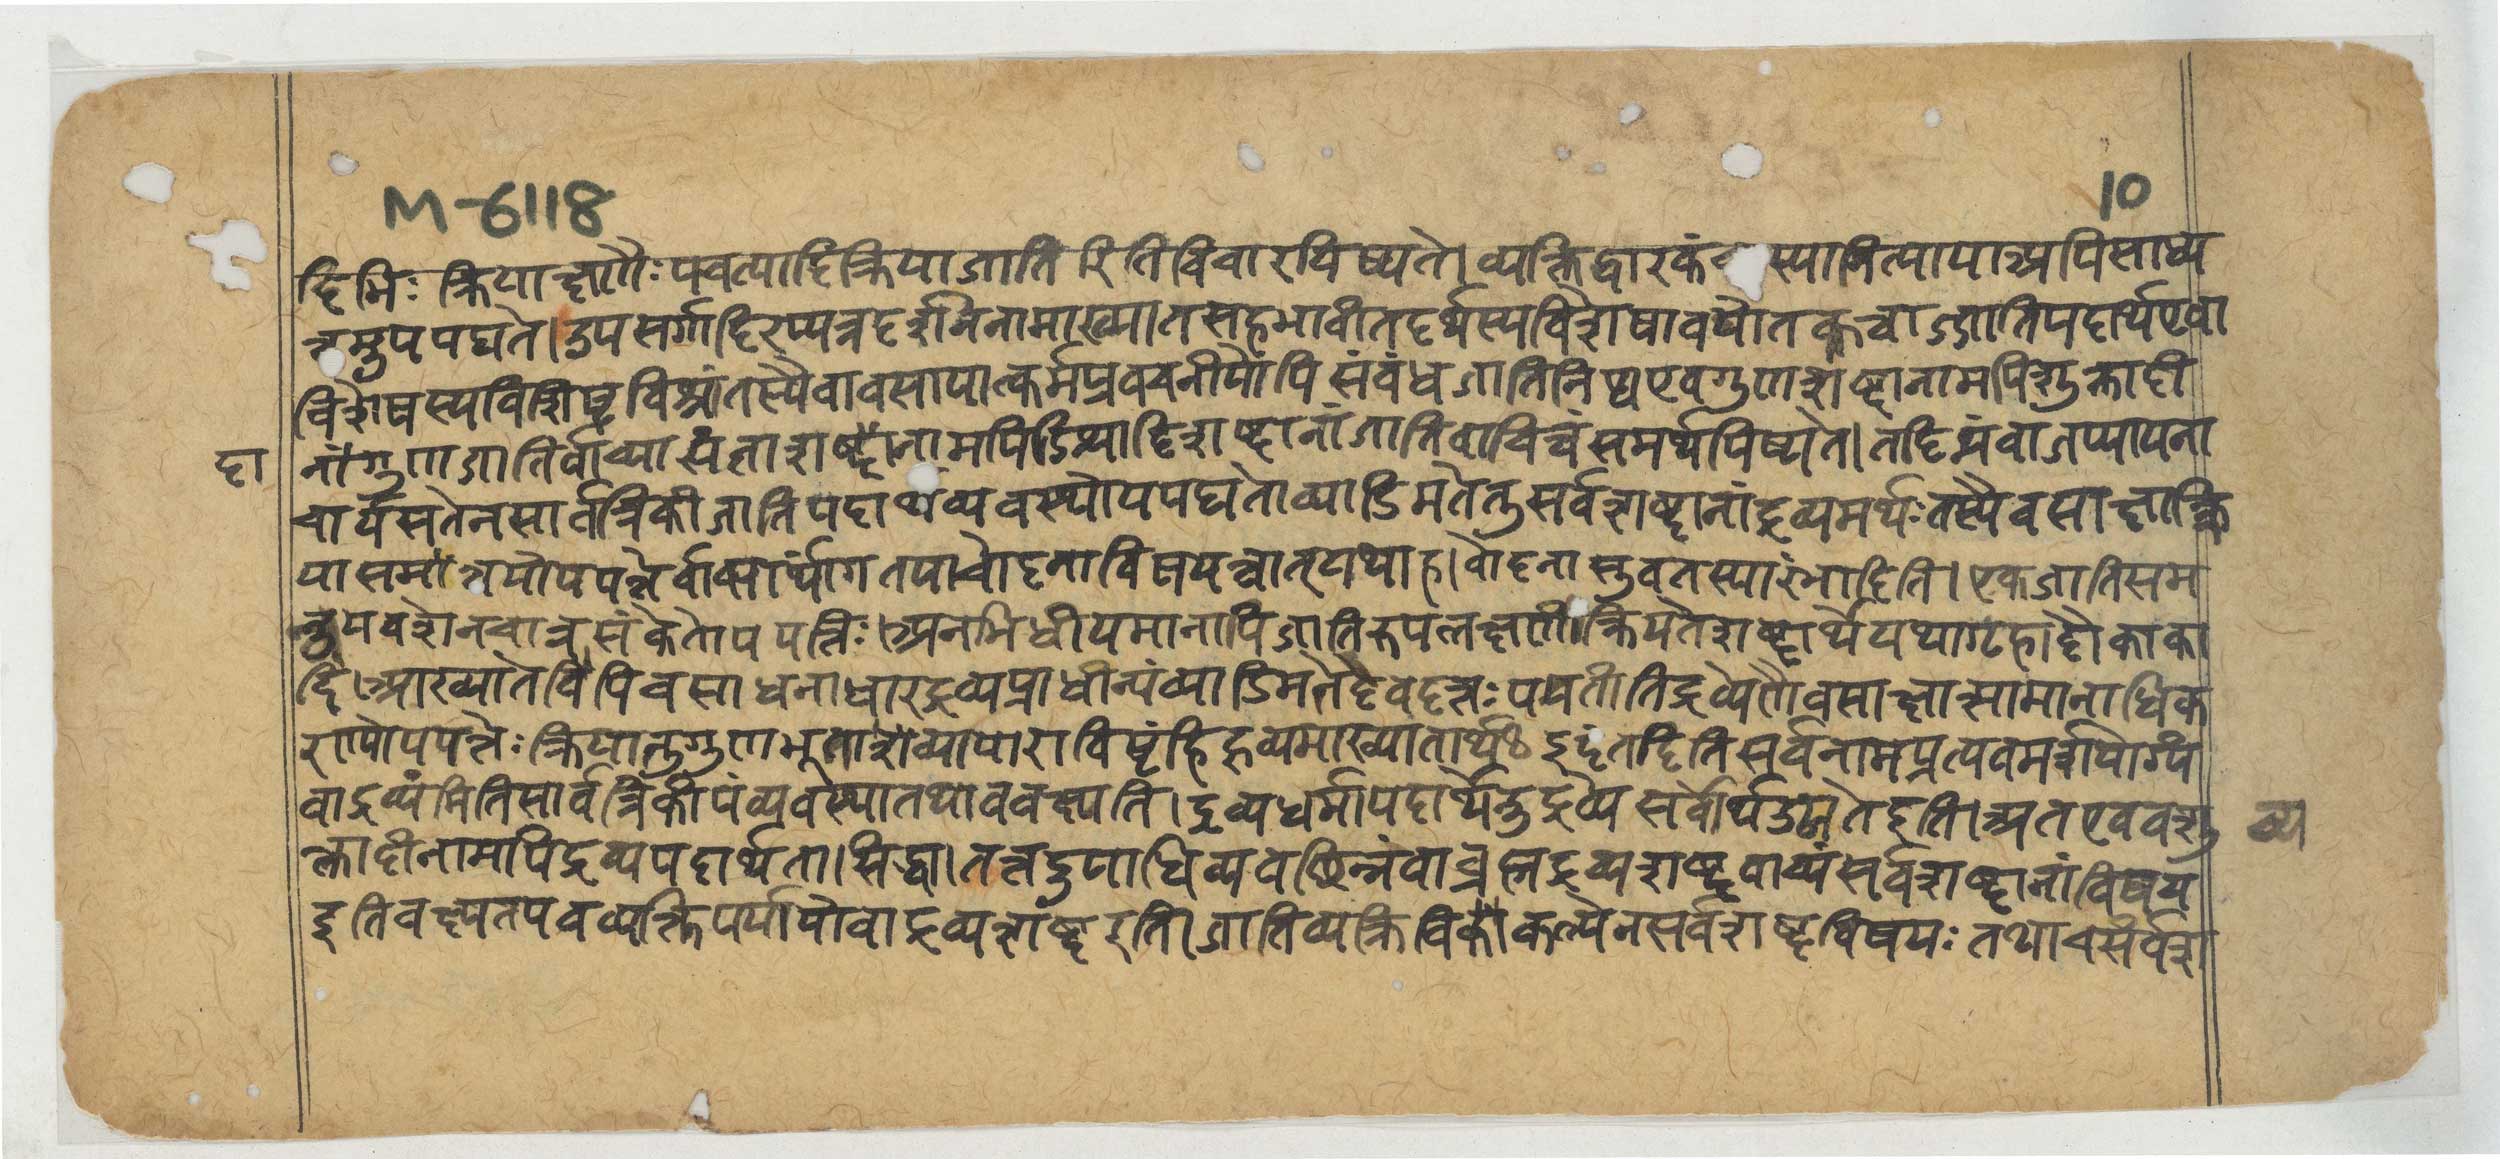 M-6118
10
दिभिः क्रियाक्षणैः पचत्यादिक्रियाजातिरितिविचारयिष्यते। व्यक्तिद्वारकं स्यानित्यायाअपिसाध्य
त्वमुपपद्यते। उपसर्गादिरप्यत्रदर्शनेनामाख्यातसहभावीतदर्थस्यविशेषावद्योतकत्वाज्जातिपदार्थएवा
विशेषस्यविशिष्टविश्रांतस्यैवावसायात्कर्मप्रवचनीयोपि संबंधजातिनिष्ठएवगुणशब्दानामपिशुक्लादी
नांगुणजातिर्वाच्या संज्ञाशब्दानामपिडित्थादिशब्दानांजातिवाचित्वंसमर्थयिष्यते। तदित्थंवाजप्यायना
दा
चार्यमतेनसार्वत्रिकीजातिपदार्थव्यवस्थोपपद्यतेव्याडिमतेतुसर्वशब्दानांद्रव्यमर्थः तस्यैवसाक्षात्क्रि
यासमन्वयोपपत्तेर्वाक्यार्थांगतयाचोदनाविषयत्वात्तथाह। चोदनासुचतस्यारंभादिति। एकजातिसम
न्वयवशेनचात्रसंकेतोपपत्तिः। अनभिधीयमानापिजातिरुपलक्षणीक्रियतेशब्दार्थेयथागृहादौकाका
दि। आख्यातेपिचसाधनाधारद्रव्यप्राधान्यंव्याडिमतेदेवदत्तः पचतीतिद्रव्येणैवसाक्षात्सामानाधिक
रण्योपपत्तेः क्रियातुगुणभूताशेव्यापाराविष्टंहिद्रव्यमाख्यातार्थः इदंतदितिसर्वनामप्रत्यवमर्शयोग्यं
वाद्रव्यमितिसार्वत्रिकीयंव्यवस्थातथाचवक्ष्यति। द्रव्यधर्मापदार्थेतुद्रव्येसर्वोर्थउच्यतेइति। अतएवचशु
व्य
क्लादीनामपिद्रव्यपदार्थता। सिद्धा। तत्तद्गुणाधिव्यवछिन्नंवाब्रह्मद्रव्यशब्दवाच्यंसर्वशब्दानांविषय
इतिवक्ष्यतएवव्यक्तिपर्यायोवाद्रव्यशब्दइति। जातिव्यक्तिविकल्पेनसर्वशब्दविषयः तथाचसर्वश